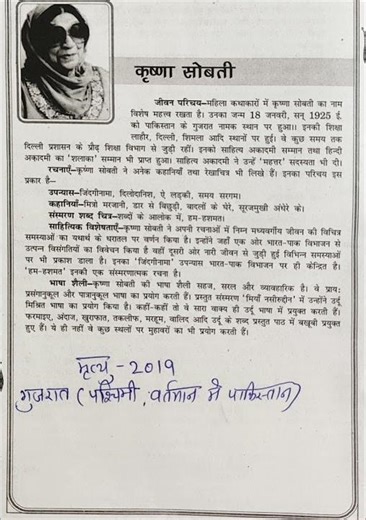 कृष्णा सोबती
जीवन परिचय–महिला कथाकारों में कृष्णा सोबती का नाम
विशेष महत्त्व रखता है। उनका जन्म 18 जनवरी, सन् 1925 ई.
को पाकिस्तान के गुजरात नामक स्थान पर हुआ। इनकी शिक्षा
लाहौर, दिल्ली, शिमला आदि स्थानों पर हुई। वे कुछ समय तक
दिल्ली प्रशासन के प्रौढ़ शिक्षा विभाग से जुड़ी रहीं। इनको साहित्य अकादमी सम्मान तथा हिन्दी
अकादमी का 'शलाका' सम्मान भी प्राप्त हुआ। साहित्य अकादमी ने उन्हें 'महत्तर' सदस्यता भी दी।
रचनाएँ–कृष्णा सोबती ने अनेक कहानियाँ तथा रेखाचित्र भी लिखे हैं। इनका परिचय इस
प्रकार है–
उपन्यास–जिंदगीनामा, दिलोदानिश, ऐ लड़की, समय सरगम।
कहानियाँ–मित्रो मरजानी, डार से बिछुड़ी, बादलों के घेरे, सूरजमुखी अंधेरे के।
संस्मरण शब्द चित्र–शब्दों के आलोक में, हम-हशमत।
साहित्यिक विशेषताएँ–कृष्णा सोबती ने अपनी रचनाओं में निम्न मध्यवर्गीय जीवन की विचित्र
समस्याओं का यथार्थ के धरातल पर वर्णन किया है। इन्होंने जहाँ एक ओर भारत-पाक विभाजन से
उत्पन्न विसंगतियों का विवेचन किया है वहाँ दूसरी ओर नारी जीवन से जुड़ी हुई विभिन्न समस्याओं
पर भी प्रकाश डाला है। इनका 'जिंदगीनामा' उपन्यास भारत-पाक विभाजन पर ही केन्द्रित है।
'हम-हशमत' इनकी एक संस्मरणात्मक रचना है।
भाषा शैली–कृष्णा सोबती की भाषा शैली सहज, सरल और व्यावहारिक है। वे प्रायः
प्रसंगानुकूल और पात्रानुकूल भाषा का प्रयोग करती हैं। प्रस्तुत संस्मरण 'मियाँ नसीरुद्दीन' में उन्होंने उर्दू
मिश्रित भाषा का प्रयोग किया है। कहीं-कहीं तो वे सारा वाक्य ही उर्दू भाषा में प्रयुक्त करती हैं।
फरमाइए, अंदाज, खुराफात, तकलीफ, मरहूम, वालिद आदि उर्दू के शब्द प्रस्तुत पाठ में बखूबी प्रयुक्त
हुए हैं। ये ही नहीं वे कुछ स्थलों पर मुहावरों का भी प्रयोग करती हैं।
मृत्यु - 2019
गुजरात (पश्चिमी, वर्तमान में पाकिस्तान)